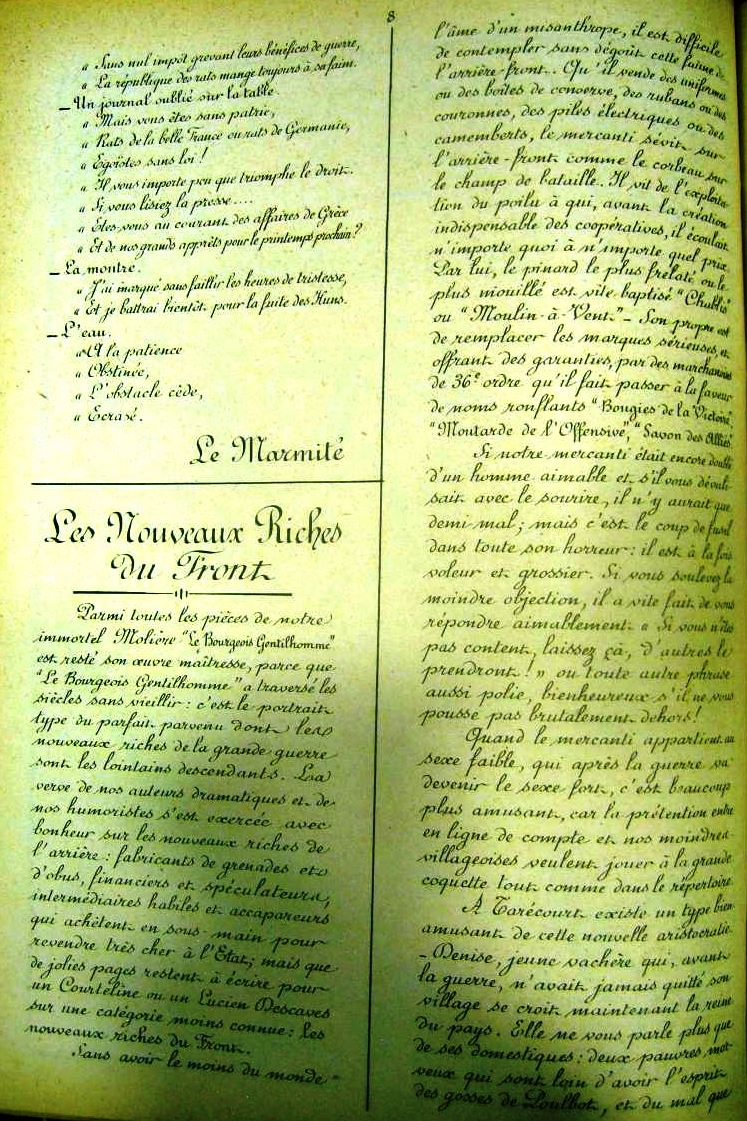 8
« Sans nul impôt grevant leurs bénéfices de guerre,
« La république des rats mange toujours à sa faim.
_ Un journal oublié sur la table.
« Mais vous êtes sans patrie,
« Rats de la belle France ou rats de Germanie,
« Egoïstes sans loi !
« Il vous importe peu que triomphe le droit.
« Si vous lisiez la presse....
« Etes-vous au courant des affaires de Grèce
« Et de nos grands apprêts pour le printemps prochain ?
_ La montre.
« J'ai marqué sans faillir les heures de tristesse,
« Et je battrai bientôt pour la fuite des Huns.
_ L'eau.
« A la patience
« Obstinée,
« L'obstacle cède,
« Ecrasé.
Le Marmité
Les Nouveaux Riches
du Front
Parmi toutes les pièces de notre
immortel Molière "Le Bourgeois Gentilhomme"
est resté son œuvre maîtresse, parce que
"Le Bourgeois Gentilhomme" a traversé les
siècles sans vieillir : c'est le portrait
type du parfait parvenu dont les
nouveaux riches de la grande guerre
sont les lointains descendants. La
verve de nos auteurs dramatiques et de
nos humoristes s'est exercée avec
bonheur sur les nouveaux riches de
l'arrière : fabricants de grenades et
d'obus, financiers et spéculateurs,
intermédiaires habiles et accapareurs
qui achètent en sous-main pour
revendre très cher à l'Etat ; mais que
de jolies pages restent à écrire pour
un Courteline ou un Lucien Descaves
sur une catégorie moins connue : les
nouveaux riches du Front.
Sans avoir le moins du monde
l'âme d'un misanthrope, il est difficile
de contempler sans dégoût cette faune de
l'arrière-front.. Qu'il vende des uniformes
ou des boîtes de conserve, des rubans ou des
couronnes, des piles électriques ou des
camemberts, le mercanti sévit sur
l'arrière-front comme le corbeau sur
le champ de bataille. Il vit de l'exploita-
tion du poilu à qui, avant la création
indispensable des coopératives, il écoulait
n'importe quoi à n'importe quel prix.
Par lui, le pinard le plus frelaté ou le
plus mouillé est vite baptisé "Chablis"
ou "Moulin-à-Vent" _ Son propre est
de remplacer les marques sérieuses, et
offrant des garanties, par des marchandises
de 36e ordre qu'il fait passer à la faveur
de noms ronflants "Bougies de la Victoire",
"Moutarde de l'Offensive", "Savon des Alliés".
Si notre mercanti était encore doublé
d'un homme aimable et s'il vous dévali-
sait avec le sourire, il n'y aurait que
demi mal ; mais c'est le coup de fusil
dans toute son horreur : il est à la fois
voleur et grossier. Si vous soulevez la
moindre objection, il a vite fait de vous
répondre aimablement « Si vous n'êtes
pas content, laissez çà, d'autres le
prendront ! » ou toute autre phrase
aussi polie, bienheureux s'il ne vous
pousse pas brutalement dehors !
Quand le mercanti appartient au
sexe faible, qui après la guerre va
devenir le sexe fort, c'est beaucoup
plus amusant, car la prétention entre
en ligne de compte et nos moindres
villageoises veulent jouer à la grande
coquette tout comme dans le répertoire.
A Tarécourt existe un type bien
amusant de cette nouvelle aristocratie.
_ Denise, jeune vachère qui, avant
la guerre, n'avait jamais quitté son
village se croit maintenant la reine
du pays. Elle ne vous parle plus que
de ses domestiques : deux pauvres mor-
veux qui sont loin d'avoir l'esprit
des gosses de Poulbot, et du mal que